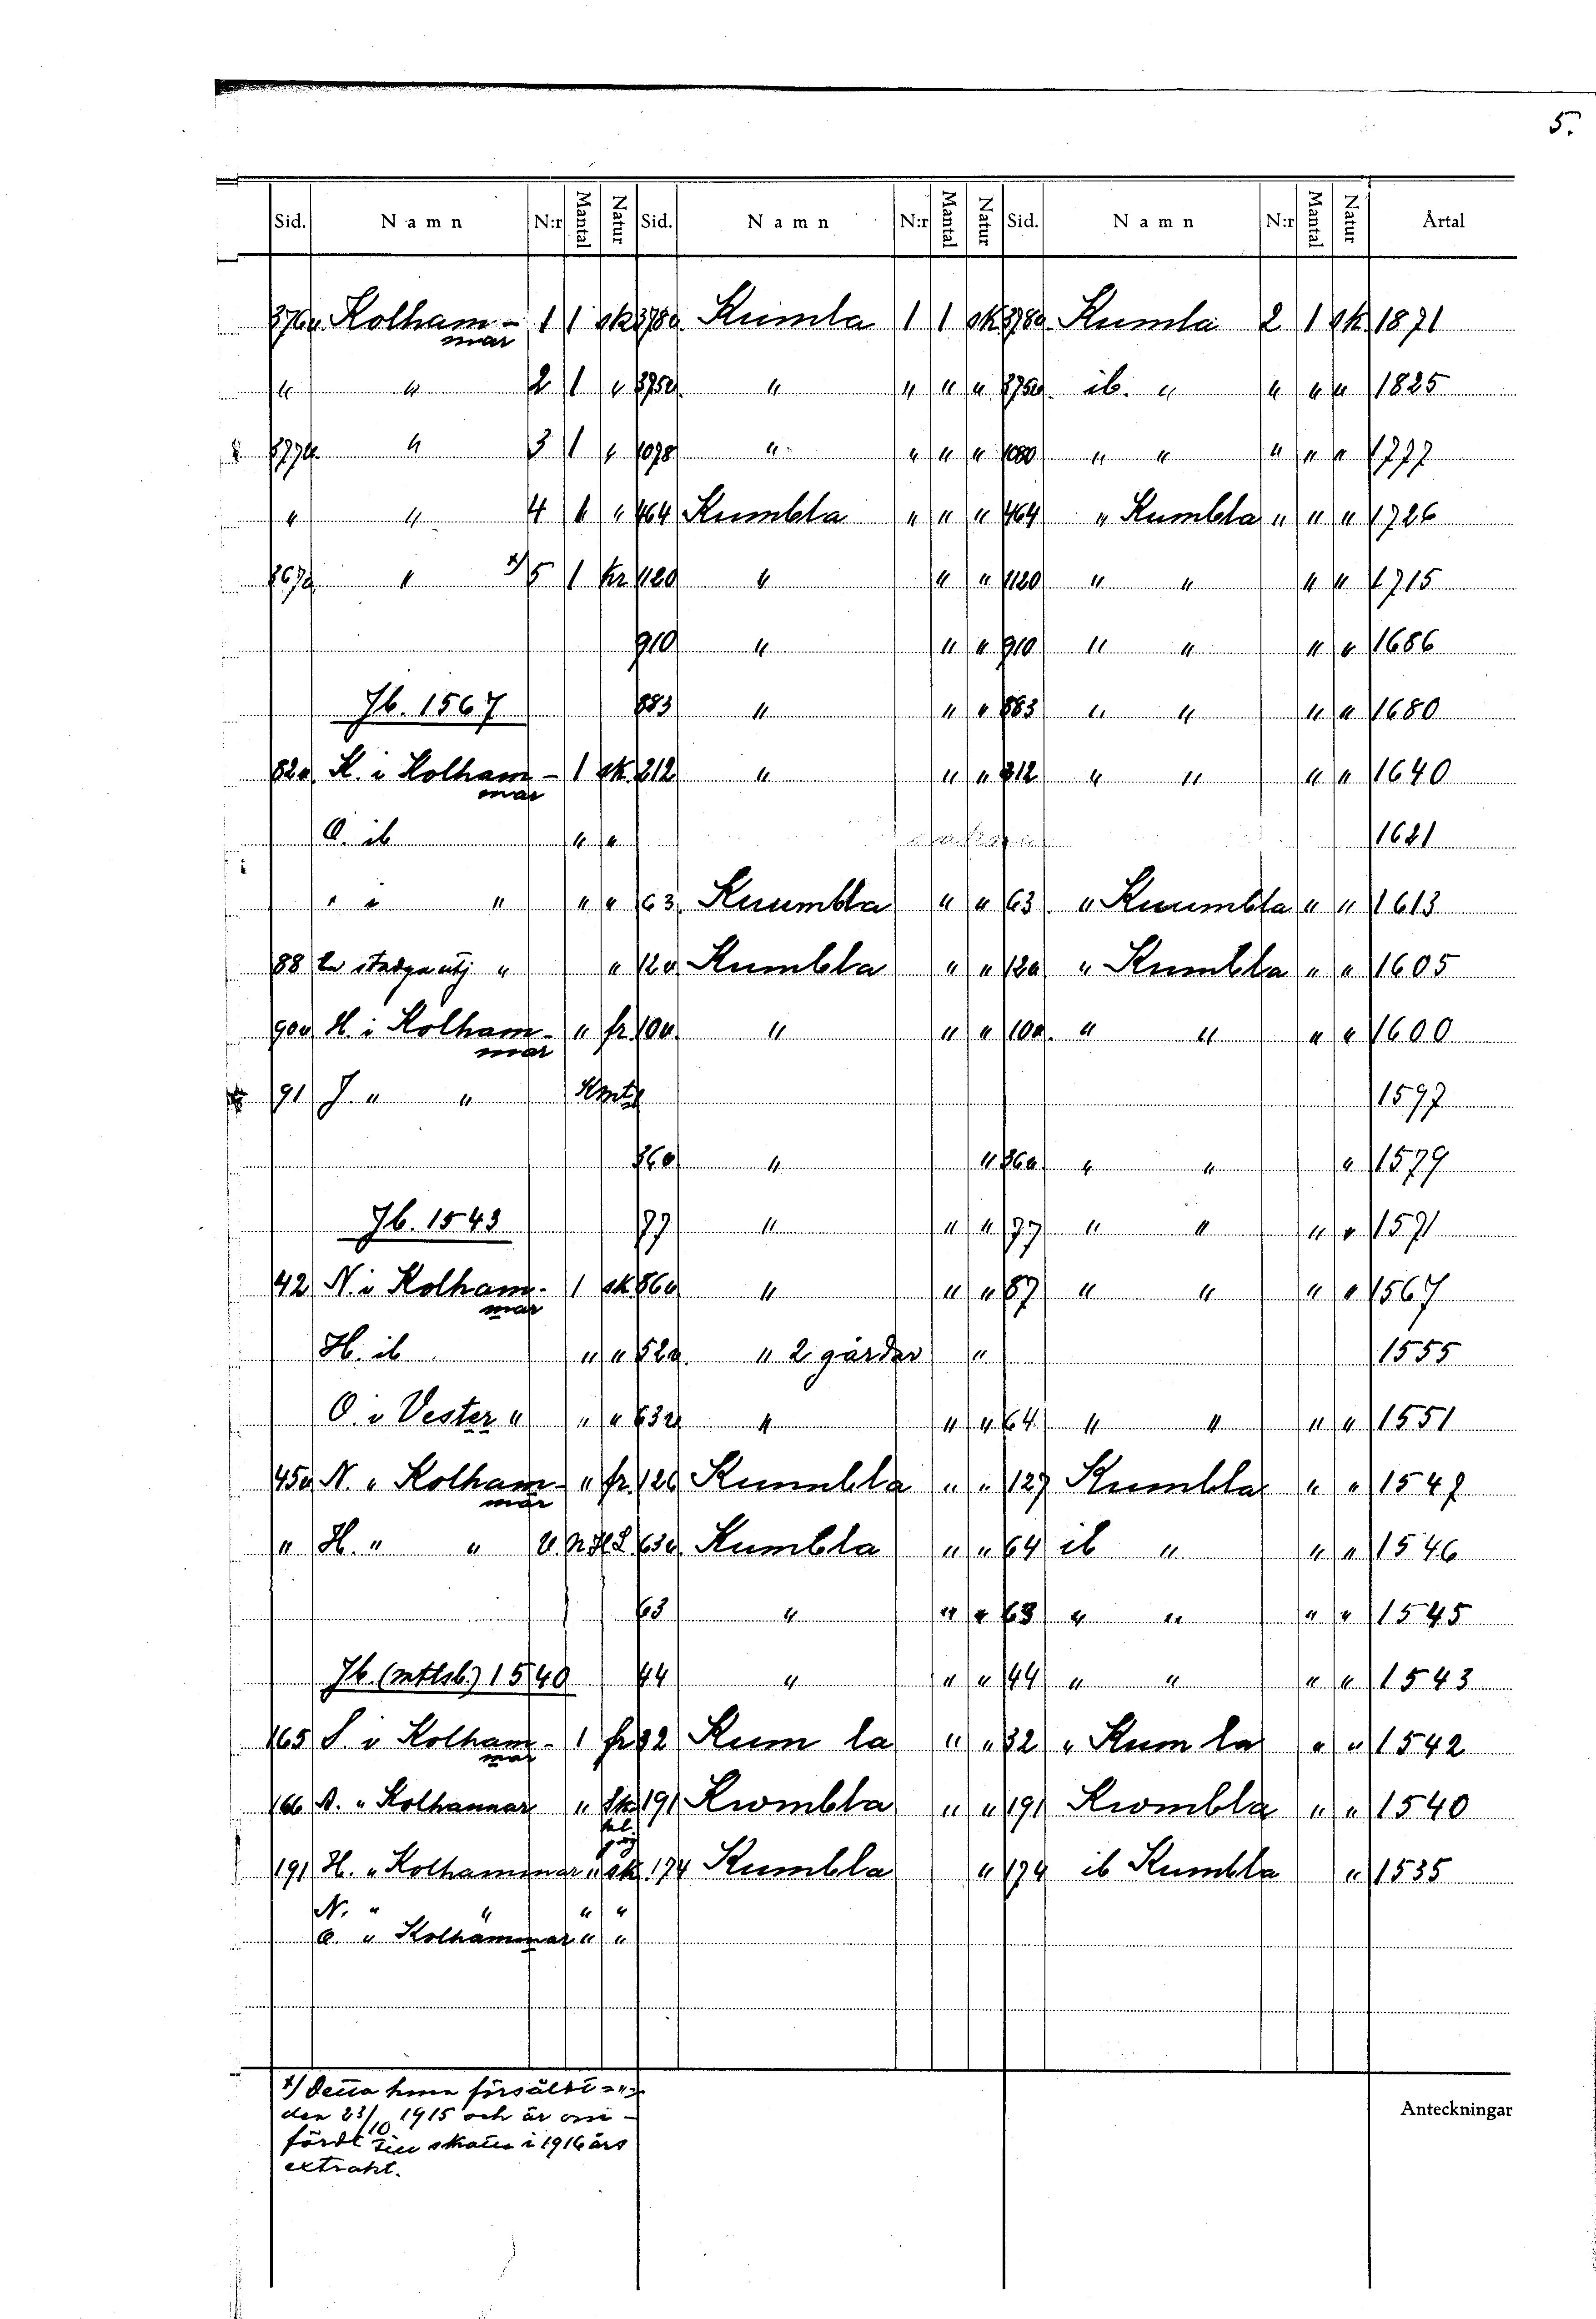 5.
Sid. Namn N:r Mantal Natur Sid. Namn N:r Mantal Natur Sid. Namn N:r Mantal Natur Årtal
376a Kolham- 1 1 sk 378a Kumla 1 1 sk 378a Kumla 2 1 sk 1871
mar
" " 2 1 " 375a " " " " 375a ib. " " " " 1825
377a " 3 1 " 1078 " " " " 1080 " " " " " 1777
" " 4 1 " 464 Kumbla " " " 464 " Kumbla " " " 1726
" x/ 5 1 kr 1120 " " " 1120 " " " " 1715
910 " " " 910 " " " " 1686
Jb. 1567 883 " " " 883 " " " " 1680
82a K. i Kolham- 1 sk 212 " " " 212 " " " " 1640
mar
O. ib " " 1621
" i " " " 63 Kuumbla " " 63 " Kuumbla " " 1613
88 En stadga utj " " 12a Kumbla " " 12a " Kumbla " " 1605
90a H. i Kolham- " fr. 10a " " " 10a " " " " 1600
mar
91 J. " " 1597
86a " " 86a " " " 1579
Jb. 1543 77 " " " 77 " " " " 1571
42 N. i Kolham- 1 sk 86a " " " 87 " " " " 1567
mar
H. ib " " 52a " 2 gårdar " 1555
O. i Vester " " " 63a " " " 64 " " " " 1551
45a N. " Kolham- " fr. 126 Kumbla " " 127 Kumbla " " 1547
mar
" H. " " 63a Kumbla " " 64 ib " " " 1546
63 " " " 63 " " " " 1545
Jb. (mtlsb.) 1540 44 " " " 44 " " " " 1543
165 S. i Kolham- 1 fr 32 Kum la " " 32 " Kum la " " 1542
mar
166 A. " Kolhannar " Sk 191 Kwmbla " " 191 Kwmbla " " 1540
191 H. " Kolhammar " sk. 174 Kumbla " 174 ib Kumbla " 1535
N. " " " "
O. " Kolhammar " "
x/ Detta hmn försåldt
den 23/10 1915 och är om-
fördt till skatte i 1916 års
extrakt.
Anteckningar